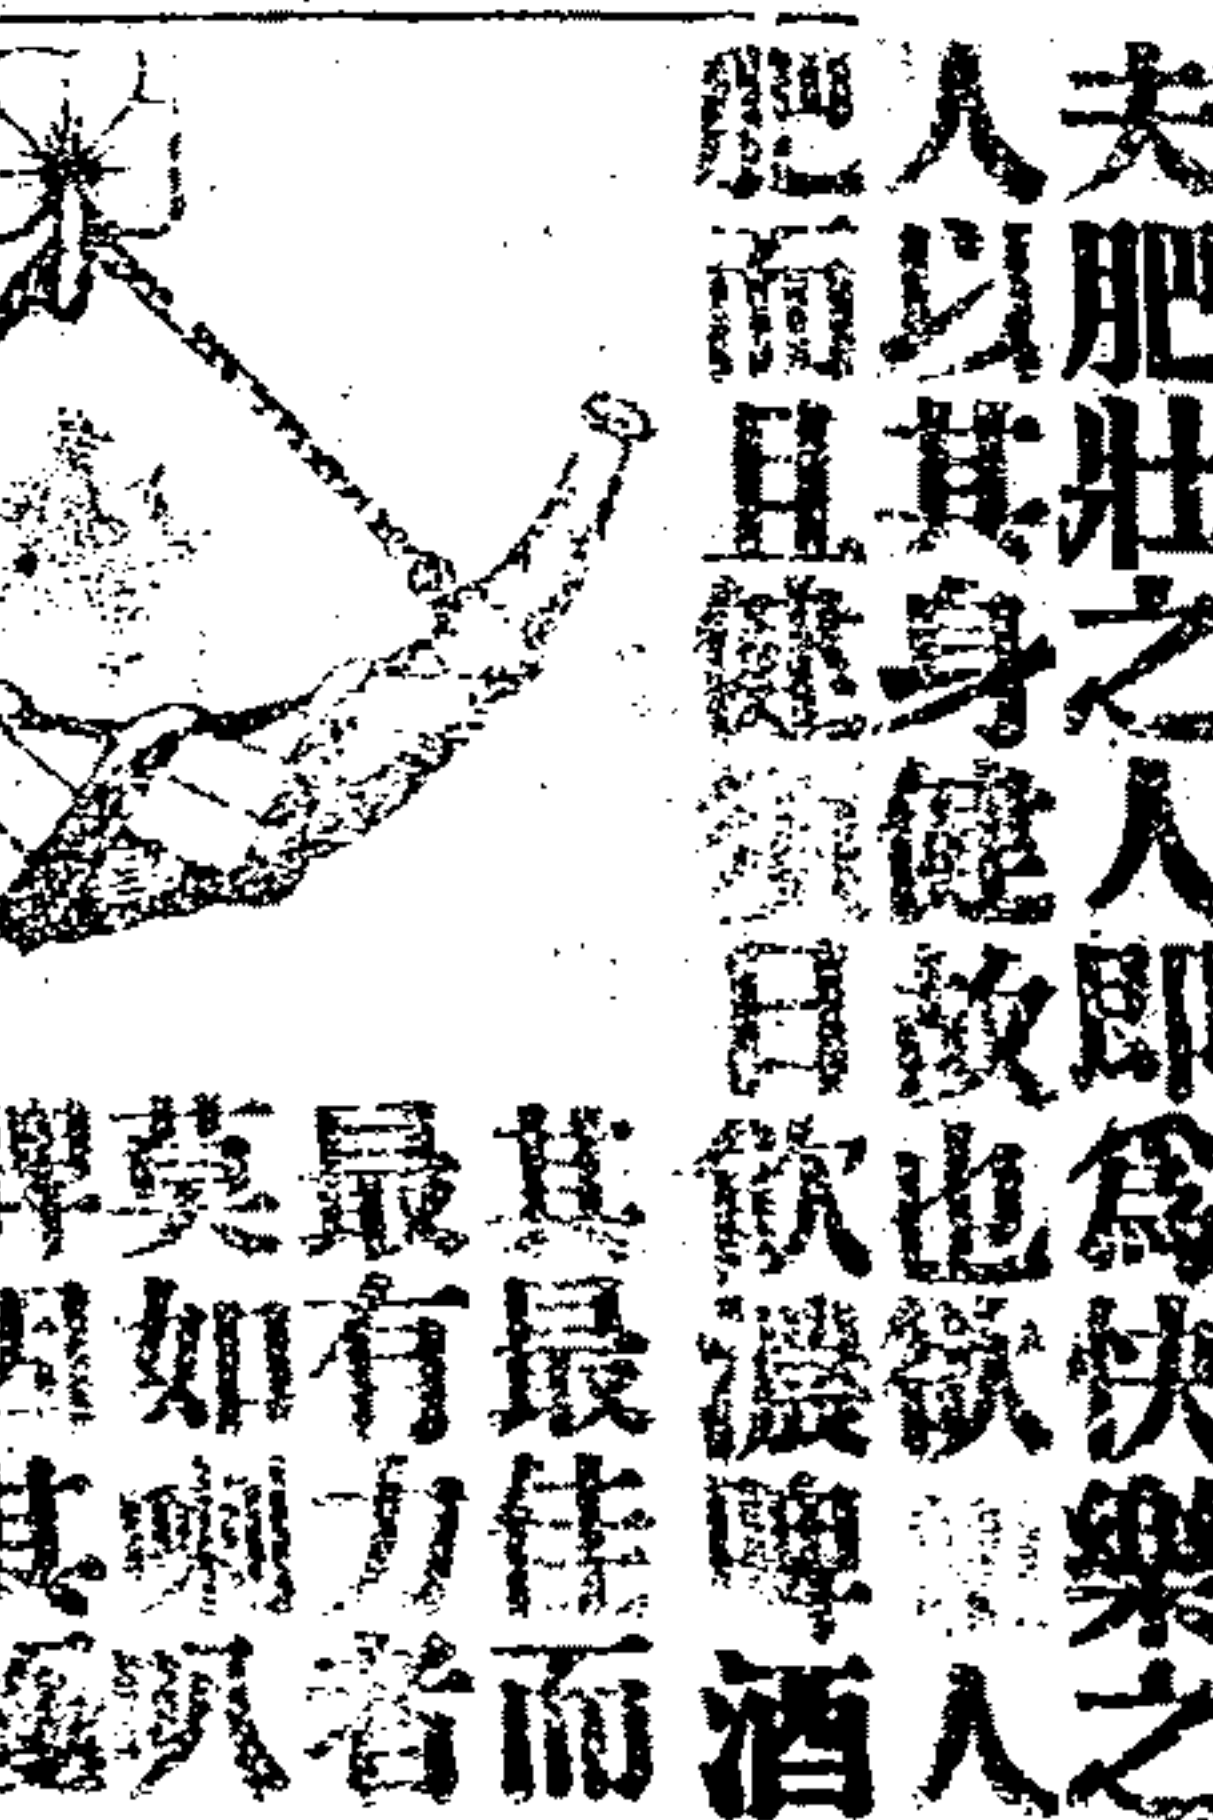 夫肥壯之人即為快樂之
人以其身健故也欲人
肥而且健須日飲濃啤酒
其最佳而
最有力者
莫如喇叭
牌因其